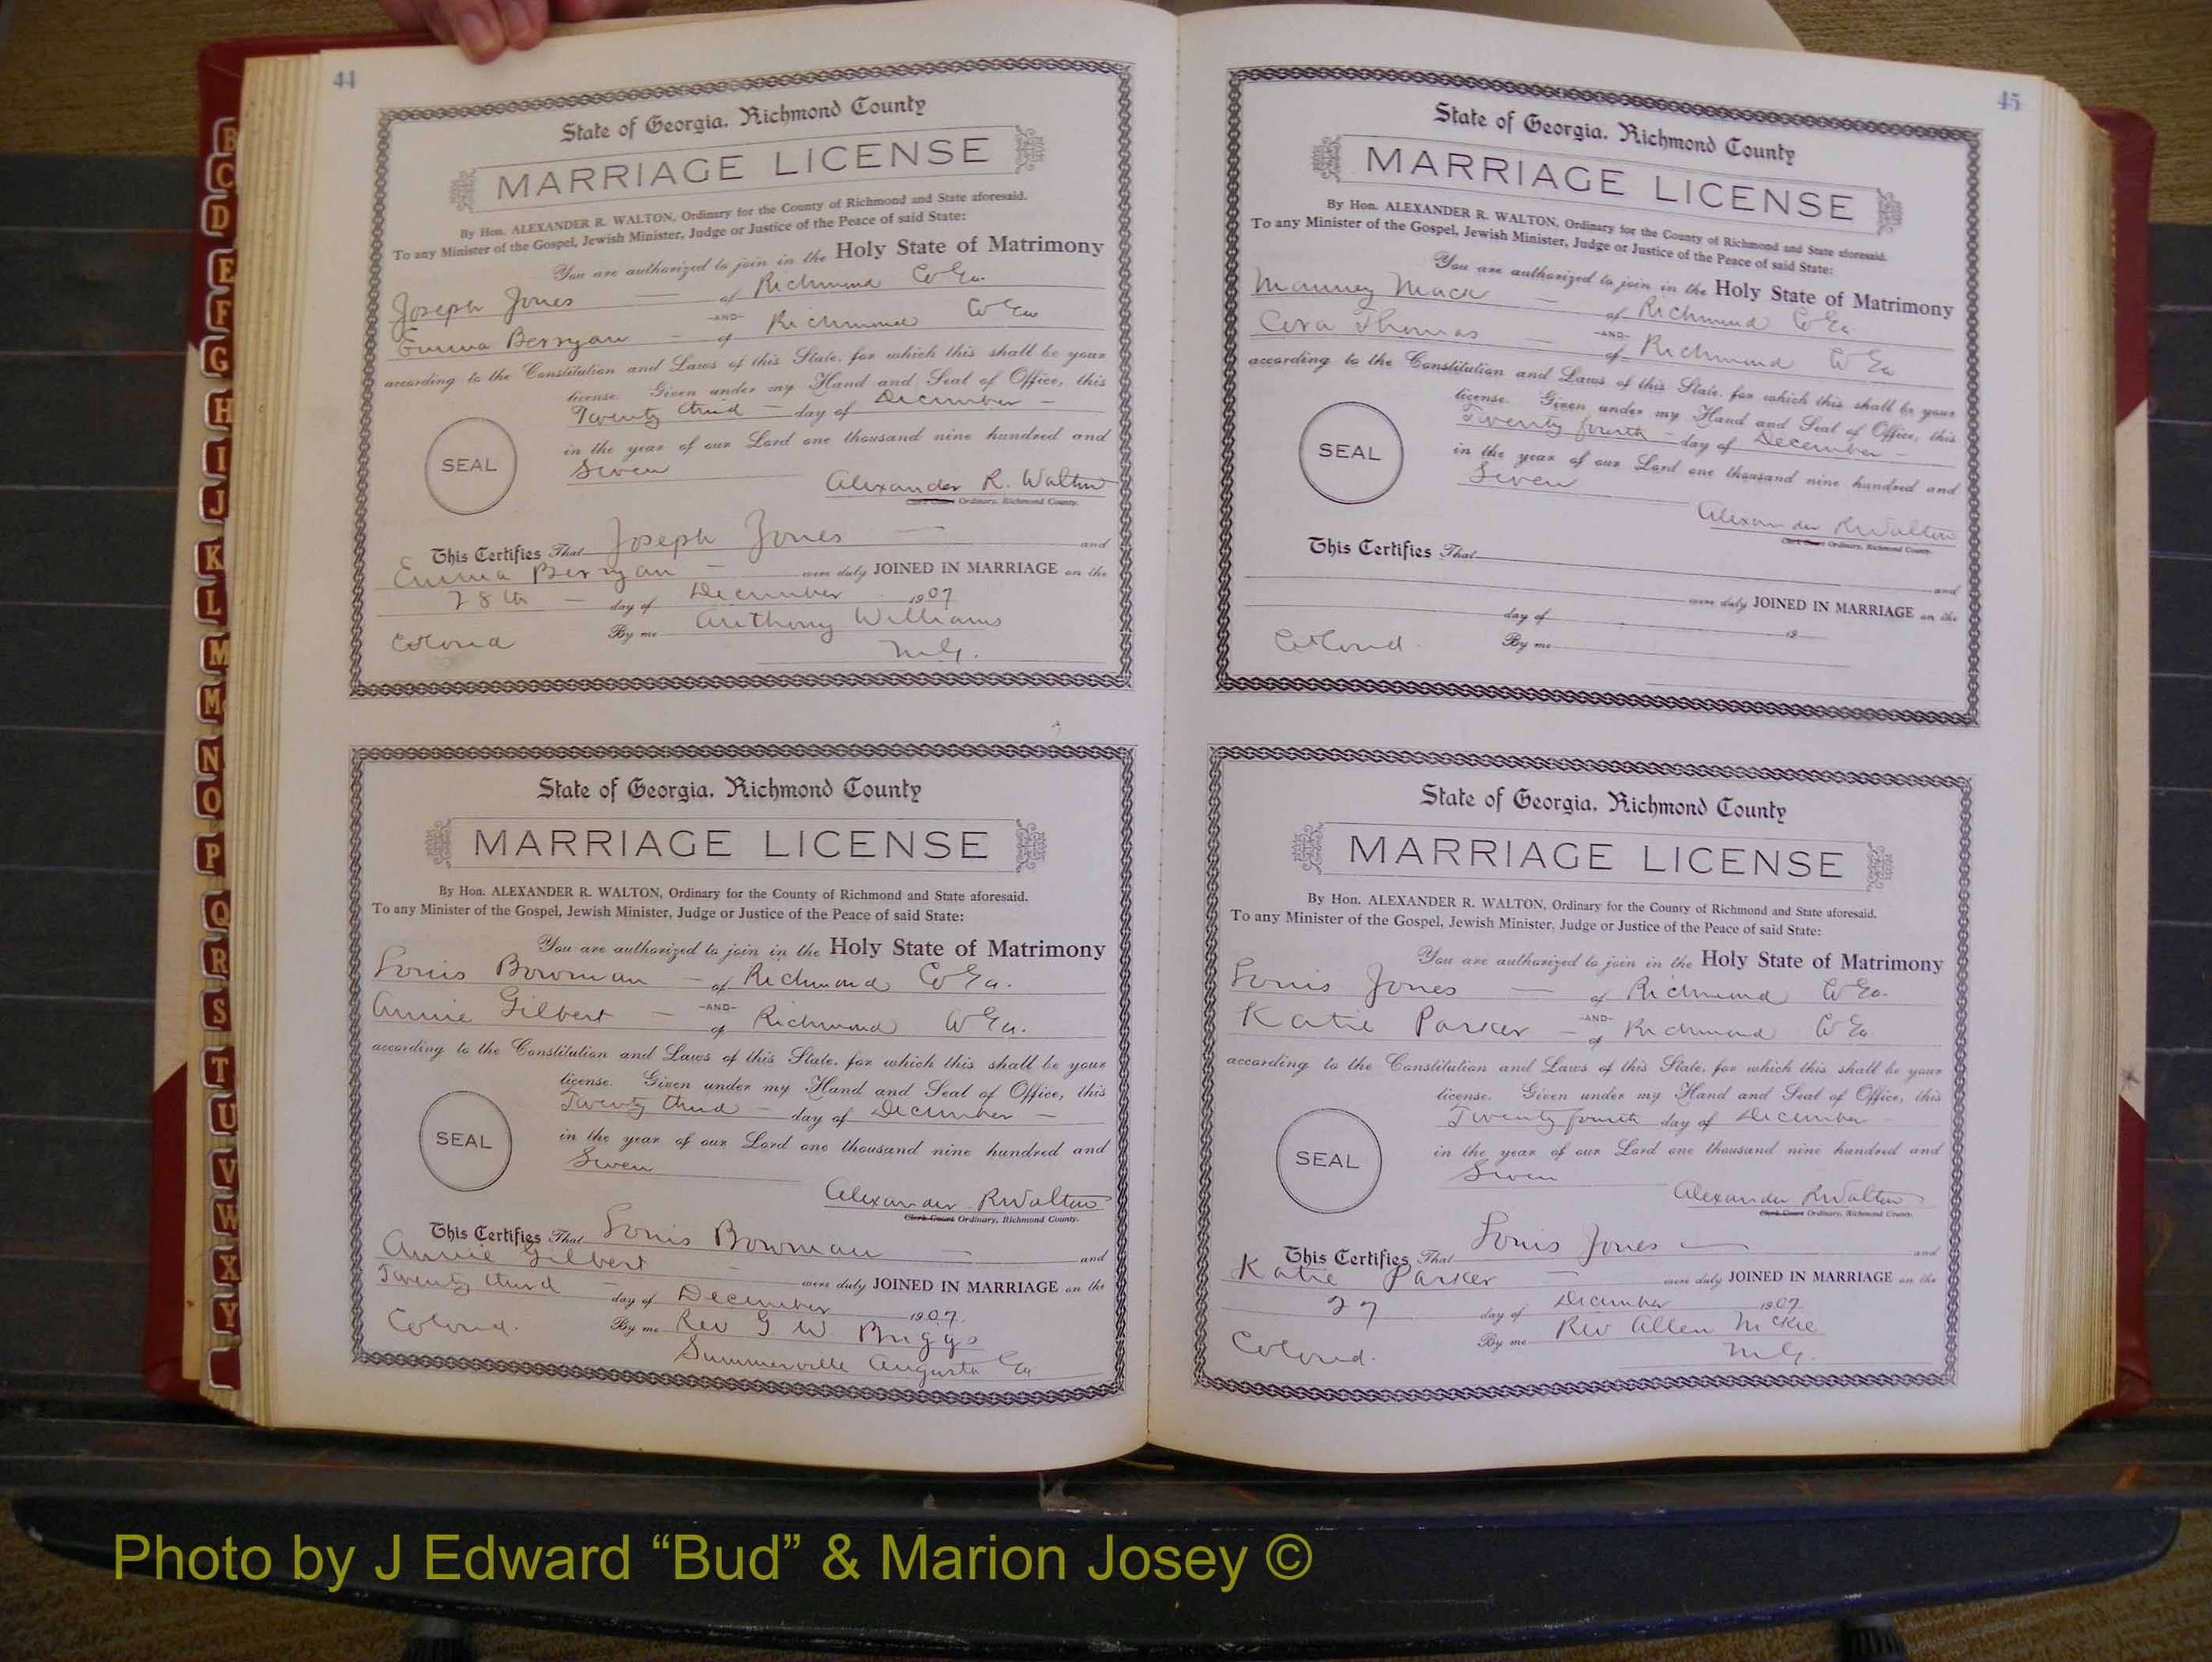 44
State of Georgia. Richmond County
MARRIAGE LICENSE
By Hon. ALEXANDER R. WALTON, Ordinary for the County of Richmond and State aforesaid.
To any Minister of the Gospel, Jewish Minister, Judge or Justice of the Peace of said State:
You are authorized to join in the Holy State of Matrimony
Joseph Jones — of Richmond Co Ga.
-AND-
Emma Berryan — of Richmond Co Ga
according to the Constitution and Laws of this State, for which this shall be your
license. Given under my Hand and Seal of Office, this
Twenty third — day of December —
in the year of our Lord one thousand nine hundred and
SEAL
Seven
Alexander R. Walton
Clerk Court Ordinary, Richmond County.
This Certifies That Joseph Jones — and
Emma Berryan — were duly JOINED IN MARRIAGE on the
28th — day of December 1907
Colored By me Anthony Williams
M.G.
State of Georgia. Richmond County
MARRIAGE LICENSE
By Hon. ALEXANDER R. WALTON, Ordinary for the County of Richmond and State aforesaid.
To any Minister of the Gospel, Jewish Minister, Judge or Justice of the Peace of said State:
You are authorized to join in the Holy State of Matrimony
Louis Bowman — of Richmond Co Ga.
-AND-
Annie Gilbert — of Richmond Co Ga.
according to the Constitution and Laws of this State, for which this shall be your
license. Given under my Hand and Seal of Office, this
Twenty third — day of December —
SEAL
in the year of our Lord one thousand nine hundred and
Seven
Alexander R Walton
Clerk Court Ordinary, Richmond County.
This Certifies That Louis Bowman — and
Annie Gilbert — were duly JOINED IN MARRIAGE on the
Twenty third — day of December 1907.
Colored. By me Rev G. W Briggs
Summerville Augusta Ga
45
State of Georgia. Richmond County
MARRIAGE LICENSE
By Hon. ALEXANDER R. WALTON, Ordinary for the County of Richmond and State aforesaid.
To any Minister of the Gospel, Jewish Minister, Judge or Justice of the Peace of said State:
You are authorized to join in the Holy State of Matrimony
Manney Mack — of Richmond Co Ga.
-AND-
Cora Thomas — of Richmond Co Ga
according to the Constitution and Laws of this State, for which this shall be your
license. Given under my Hand and Seal of Office, this
Twenty fourth — day of December —
SEAL
in the year of our Lord one thousand nine hundred and
Seven
Alexander R Walton
Clerk Court Ordinary, Richmond County.
This Certifies That
and
were duly JOINED IN MARRIAGE on the
day of 19
Colored. By me
State of Georgia. Richmond County
MARRIAGE LICENSE
By Hon. ALEXANDER R. WALTON, Ordinary for the County of Richmond and State aforesaid.
To any Minister of the Gospel, Jewish Minister, Judge or Justice of the Peace of said State:
You are authorized to join in the Holy State of Matrimony
Louis Jones — of Richmond Co Ga.
-AND-
Katie Parker — of Richmond Co Ga.
according to the Constitution and Laws of this State, for which this shall be your
license. Given under my Hand and Seal of Office, this
Twenty fourth day of December
SEAL
in the year of our Lord one thousand nine hundred and
Seven
Alexander R Walton
Clerk Court Ordinary, Richmond County.
This Certifies That Louis Jones — and
Katie Parker — were duly JOINED IN MARRIAGE on the
27 day of December 1907
Colored. By me Rev Allen McKie
M.G.
B
C
D
E
F
G
H
I
J
K
L
M
M
N
O
P
Q
R
S
T
U
V
W
X
Y
Photo by J Edward “Bud” & Marion Josey ©